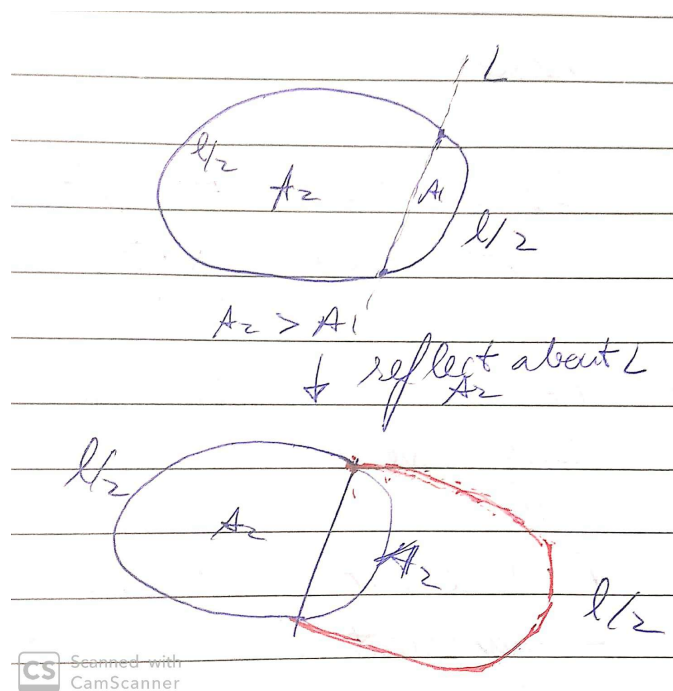 L
l/2
A2
A1
l/2
A2 > A1
↓ reflect about L
A2
l/2
A2
A2
l/2
CS Scanned with
CamScanner